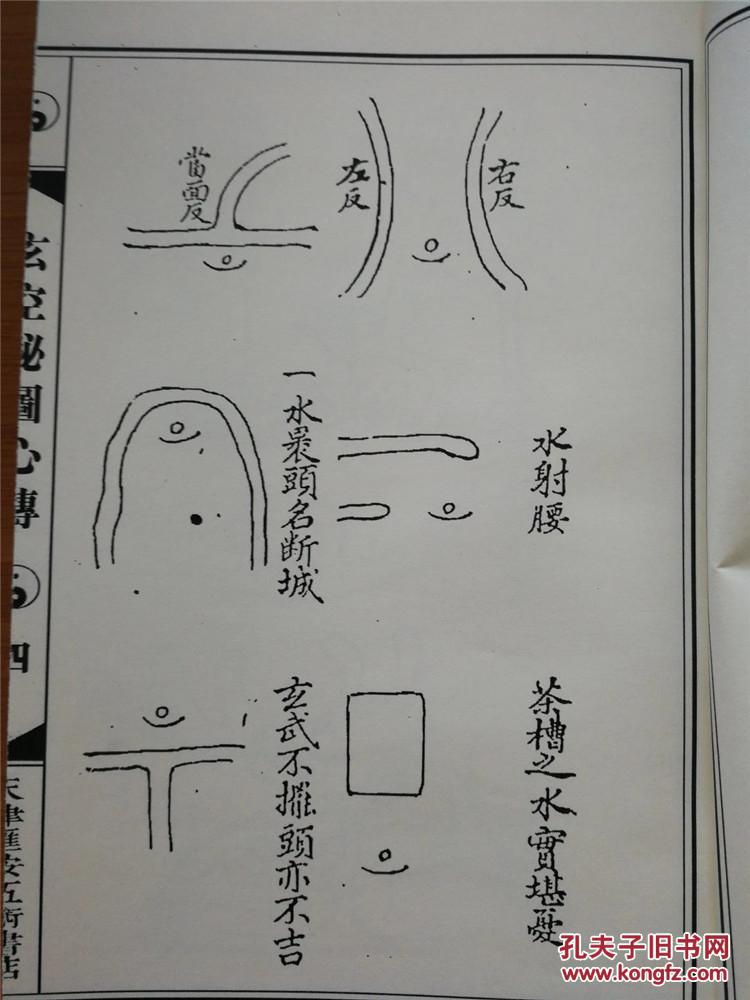 右反
左反
當面反
水射腰
一水裹頭名斷城
茶槽之水實堪憂
玄武不擺頭亦不吉
玄空秘圖心傳
四
天津匯安五術書店
孔夫子旧书网
www.kongfz.com